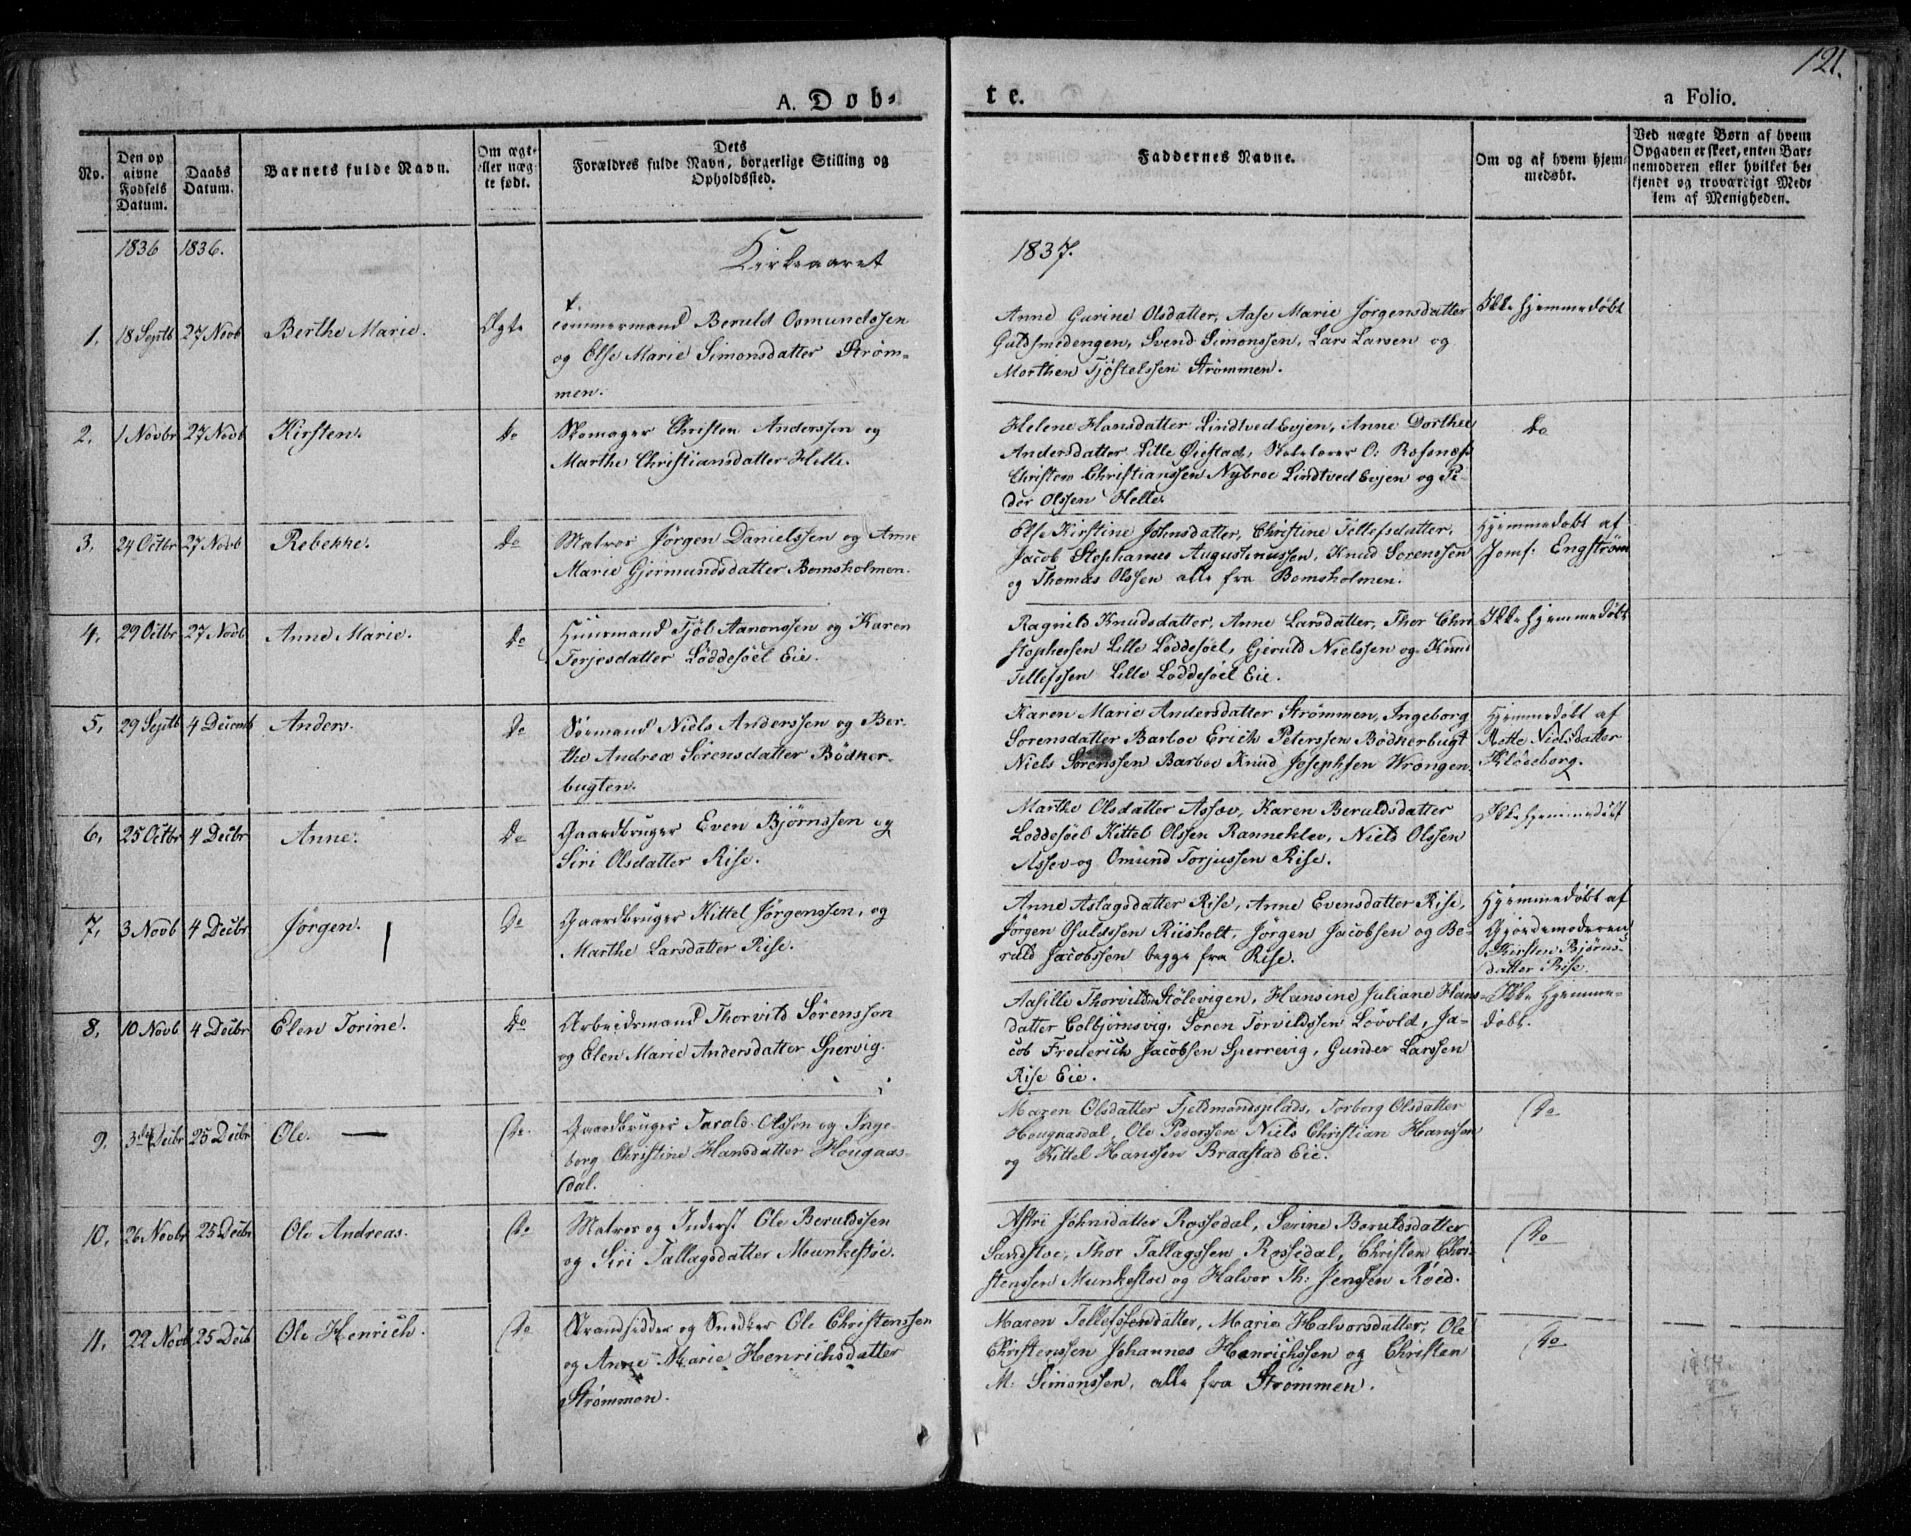 121.
A. Døb-
te.
a Folio.
No.
Den op
givne
Fødsels
Datum.
Daabs
Datum.
Barnets fulde Navn.
Om ægt-
eller næg-
te født.
Dets
Forældres fulde Navn, borgerlige Stilling og
Opholdssted.
Faddernes Navne.
Om og af hvem hjem-
medøbt.
Ved uægte Børn af hvem
Opgaven er skeet, enten Bar-
nemoderen eller hvilket be-
kjendt og troværdigt Med-
lem af Menigheden.
1836 1836.
Kirkeaaret
1837.
1. 18 Septb 27 Novb Berthe Marie. Ægte
Tømmermand Beruld Osmundssen
og Else Marie Simonsdatter Strøm-
men.
Anne Gurine Olsdatter, Aase Marie Jørgensdatter
Guldsmedengen, Svend Simonssen, Lars Larsen og
Morthen Tjøstelssen Strømmen.
Ikke hjemmedøbt
2. 1 Novbr 27 Novb Kirsten. do
Skomager Christen Anderssen og
Marthe Christiansdatter Helle.
Helene Hansdatter Lindtved Eyen, Anne Dorthee
Andersdatter Lille Øiestad, Skolelærer O: Rosenæs
Christen Christianssen Nybroe Lindtved Eyen og Pe-
der Olssen Helle.
do
3. 24 Octbr 27 Novb Rebekke. do
Matros Jørgen Danielssen og Anne
Marie Gjermundsdatter Bomsholmen.
Else Kirstine Johnsdatter, Christine Tellefsdatter,
Jacob Stephanus Augustinussen, Knud Sørenssen
og Thomas Olssen alle fra Bomsholmen.
Hjemmedøbt af
Jomf: Engstrøm
4. 29 Octbr 27 Novb Anne Marie. do
Huusmand Tjøl Aanonssen og Karen
Terjesdatter Løddesøel Eie.
Ragnild Knudsdatter, Anne Larsdatter, Thor Chri-
stophersen Lille Løddesøel, Gjeruld Nielssen og Knud
Tellefssen Lille Løddesøel Eie.
Ikke hjemmedøbt
5. 29 Septb 4 Decemb Anders. do
Sømand Niels Anderssen og Ber-
the Andrea Sørensdatter Bødker-
bugten.
Karen Marie Andersdatter Strømmen, Ingeborg
Sorensdatter Barboe Erich Peterssen Bødkerbugt
Niels Sørenssen Barboe Knud Josephsen Wrangen.
Hjemmedøbt af
Mette Nielsdatter
Klødeborg.
6. 25 Octbr 4 Decbr Anne. do
Gaardbruger Even Bjørnssen og
Siri Olsdatter Rise.
Marthe Olsdatter Assev, Karen Beruldsdatter
Loddesøel Kittel Olssen Ranneklev, Niels Olssen
Assev og Omund Torjussen Rise.
Ikke hjemmedøbt
7. 3 Novb 4 Decbr Jørgen. do
Gaardbruger Kittel Jørgenssen, og
Marthe Larsdatter Rise.
Anne Aslagsdatter Rise, Anne Evensdatter Rise,
Jørgen Osuldssen Riisholt, Jørgen Jacobsen og Be-
ruld Jacobssen begge fra Rise.
Hjemmedøbt af
Gjordemoderen
Kirsten Bjørns-
datter Rise.
8. 10 Novb 4 Decbr Elen Torine. do
Arbeidsmand Thorvild Sørenssøn
og Elen Marie Andersdatter Spervig.
Aasille Thorvildsd Stølevigen, Hansine Juliane Hans-
datter Colbjørnsvig, Søren Torvildssen Løvold, Ja-
cob Frederich Jacobsen Sperrevig, Gunder Larssen
Rise Eie.
Ikke hjemme-
døbt.
9. Decbr 25 Decbr Ole. do.
Gaardbruger Tarald Olssen og Inge
borg Christine Hansdatter Hougaas-
dal.
Maren Olsdatter Fjeldmandsplads, Torborg Olsdatter
Hougaasdal, Ole Pederssen Niels Christian Hanssen
og Kittel Hanssen Braastad Eie.
do
10. 26 Novbr 25 Decbr Ole Andreas. do
Matros og Inderst Ole Beruldssen
og Siri Tallagsdatter Munkestøe.
Astri Johnsdatter Rossedal, Serine Beruldsdatter
Sandstoe, Thor Tallagssen Rossedal, Christen Chri-
stenssen Munkestoe og Halvor Th: Jenssen Røed.
do
11. 22 Novb 25 Decb Ole Henrich. do
Strandsidder og Snedker Ole Christenssen
og Anne Marie Henrichsdatter
Strømmen.
Maren Tellefsdatter, Marie Halvorsdatter, Ole
Christenssen Johannes Henrichssen og Christen
M: Simonssen, alle fra Strommen.
do